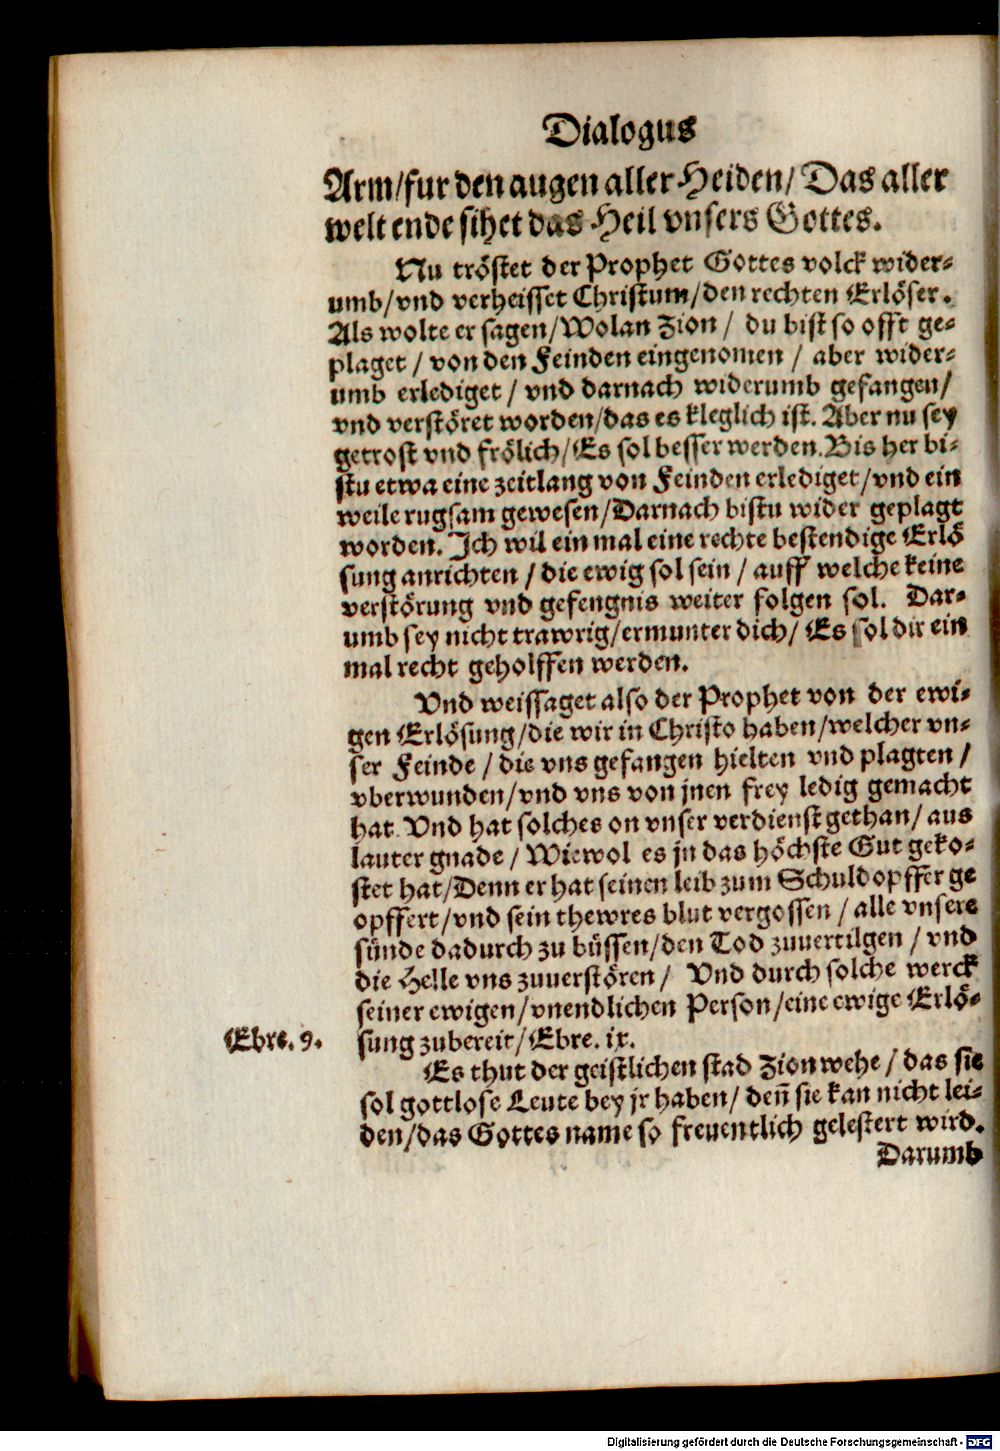 Dialogus
Arm/fur den augen aller Heiden/ Das aller
welt ende sihet das Heil vnsers Gottes.
Nu tröstet der Prophet Gottes volck wider-
umb/vnd verheisset Christum/den rechten Erlöser.
Als wolte er sagen/Wolan Zion/ du bist so offt ge-
plaget / von den Feinden eingenomen / aber wider-
umb erlediget / vnd darnach widerumb gefangen/
vnd verstöret worden/das es kleglich ist. Aber nu sey
getrost vnd frölich/Es sol besser werden. Bis her bi-
stu etwa eine zeitlang von Feinden erlediget/vnd ein
weile rugsam gewesen/Darnach bistu wider geplagt
worden. Ich wil ein mal eine rechte bestendige Erlö
sung anrichten / die ewig sol sein / auff welche keine
verstörung vnd gefengnis weiter folgen sol. Dar-
umb sey nicht trawrig/ermunter dich/ Es sol dir ein
mal recht geholffen werden.
Vnd weissaget also der Prophet von der ewi-
gen Erlösung/die wir in Christo haben/welcher vn-
ser Feinde / die vns gefangen hielten vnd plagten /
vberwunden/vnd vns von jnen frey ledig gemacht
hat. Vnd hat solches on vnser verdienst gethan/ aus
lauter gnade / Wiewol es jn das höchste Gut geko-
stet hat/Denn er hat seinen leib zum Schuldopffer ge
opffert/vnd sein thewres blut vergossen / alle vnsere
sünde dadurch zu büssen/den Tod zuuertilgen / vnd
die Helle vns zuuerstören / Vnd durch solche werck
seiner ewigen/vnendlichen Person/eine ewige Erlö-
Ebre. 9. sung zubereit/Ebre. ix.
Es thut der geistlichen stad Zion wehe / das sie
sol gottlose Leute bey jr haben/ den̄ sie kan nicht lei-
den/das Gottes name so freuentlich gelestert wird.
Darumb
Digitalisierung gefördert durch die Deutsche Forschungsgemeinschaft - DFG